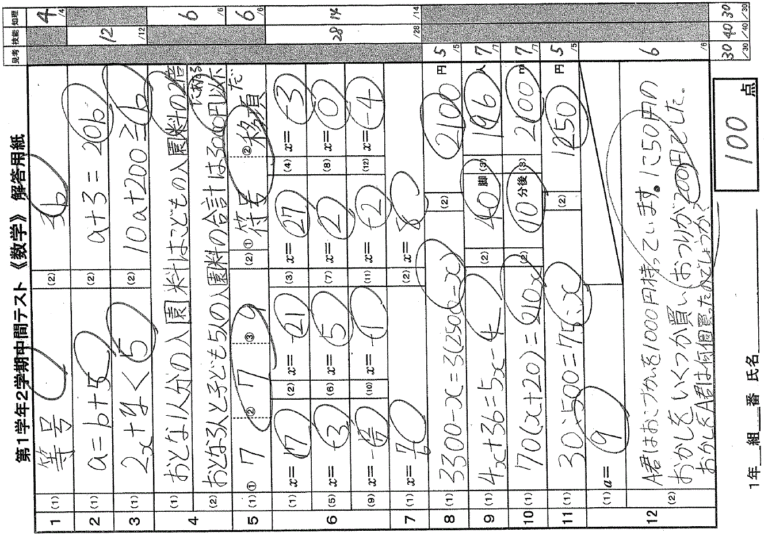 第1学年2学期中間テスト 《数学》 解答用紙
1 (1) 等号 (2) 3b
2 (1) a=b+5 (2) a+3=20b
3 (1) 2x+y<5 (2) 10a+200≧b
4 (1) おとな1人分の入園料はこどもの入園料の2倍である
(2) おとな3人と子ども5人の入園料の合計は3000円以下だ
5 (1) ① 7 ② 7 ③ 9 (2) ① 符号 ② 移項
6 (1) x=17 (2) x=-21 (3) x=27 (4) x=-3
(5) x=+3 (6) x=5 (7) x=2 (8) x=0
(9) x= (10) x=-1 (11) x=-2 (12) x=-4
7 (1) x= (2) x=8
8 (1) 3300-x=3(2500-x) (2) 2100円
9 (1) 4x+36=5x-4 (2) 40脚 (3) 196人
10 (1) 70(x+20)=210x (2) 10分後 (3) 2100m
11 (1) 30:500=75:x (2) 1250円
12 (1) a=9
(2) A君はおこづかいを1000円持っています。1こ50円の
おかしをいくつか買い、おつりが200円でした。
おかしをA君は何個買ったのでしょうか?
見考 技能 知理
4 /4
12 /12
6 /6
6 /6
28 /28 14 /14
5 /5
7 /7
7 /7
5 /5
6 /6
30 /30 40 /40 30 /30
100 点
1年 組 番 氏名